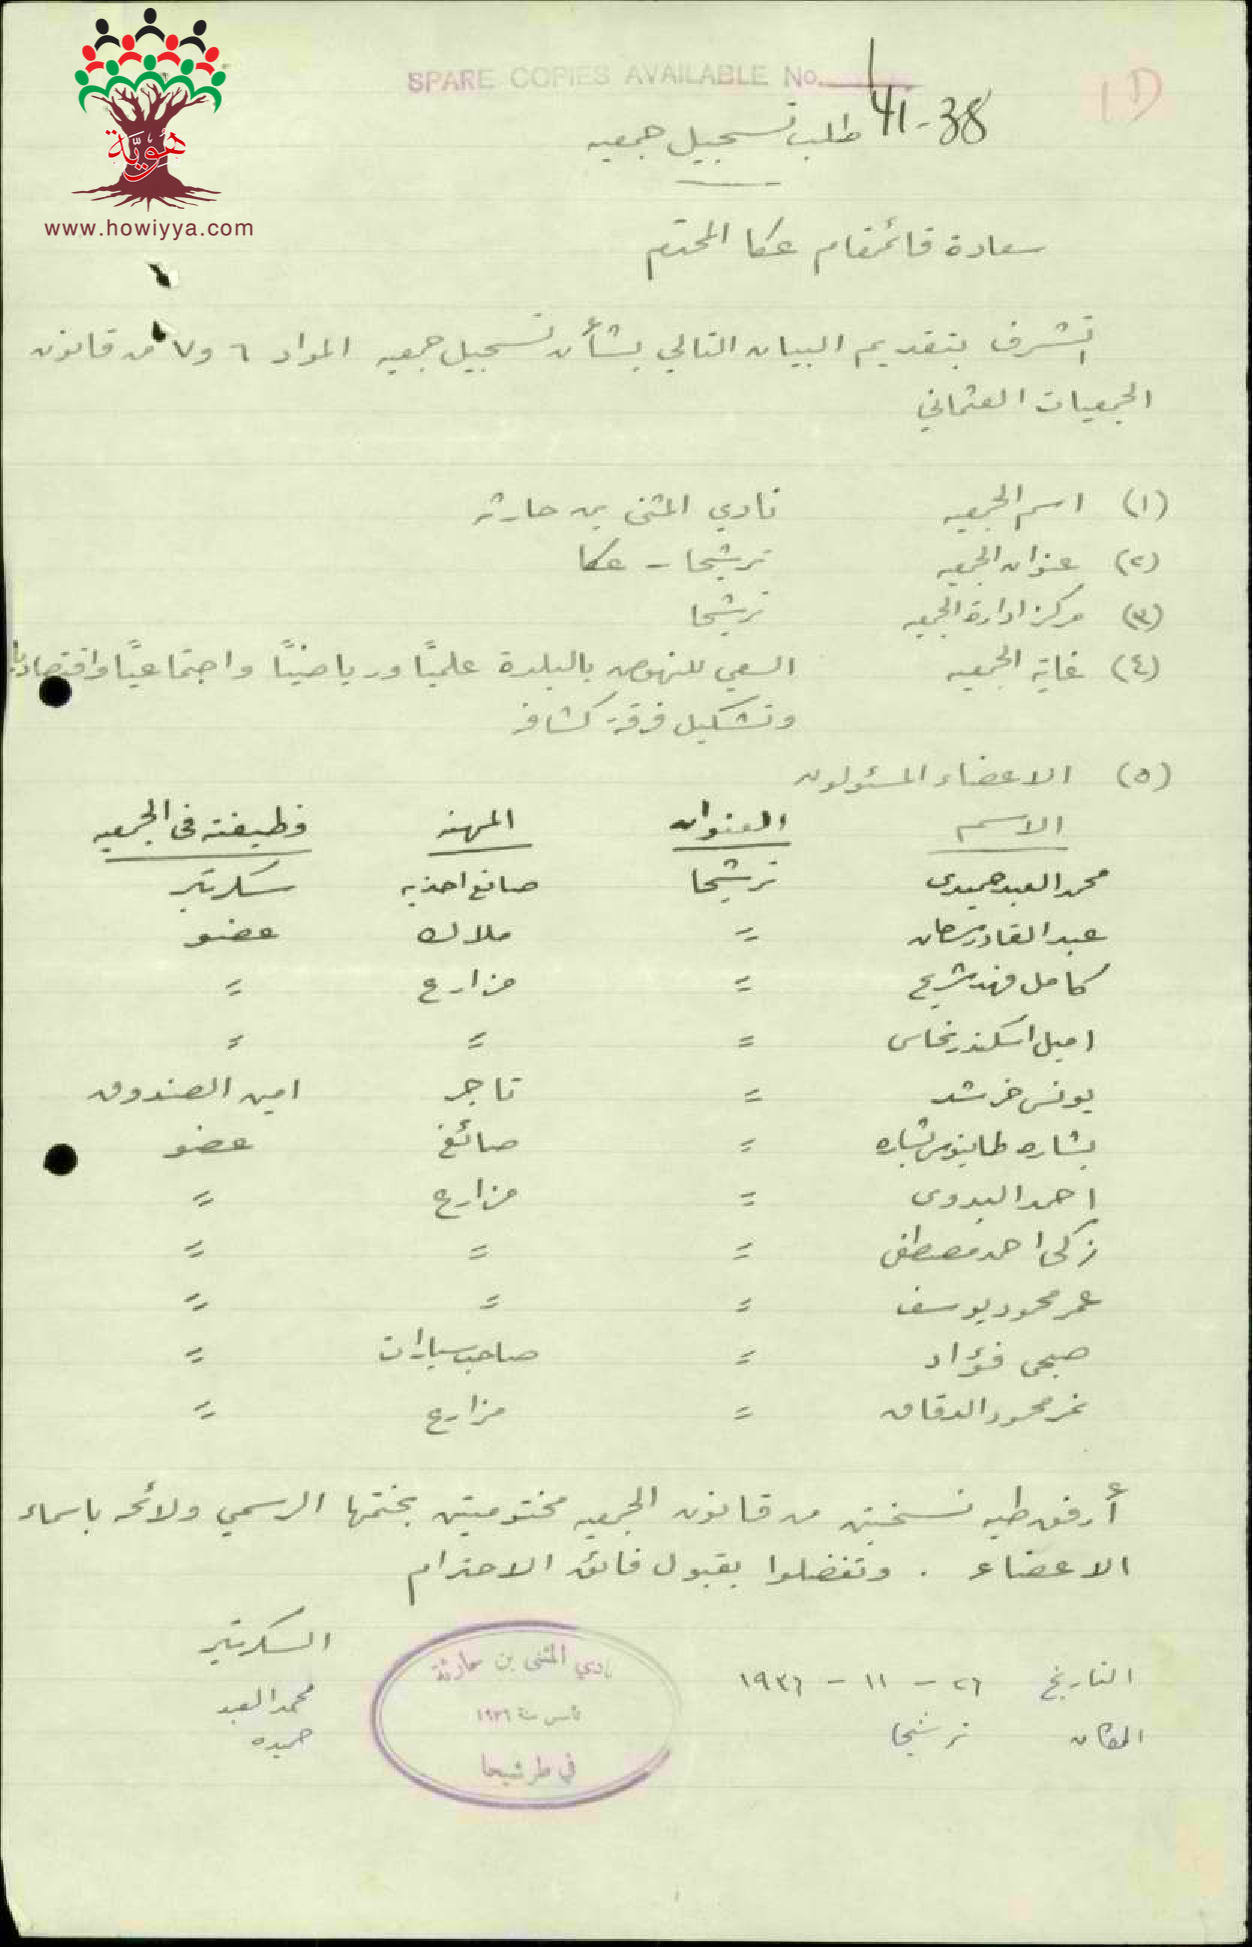 هوية
www.howiyya.com
SPARE COPIES AVAILABLE No.
41-38
1D
طلب تسجيل جمعيه
سعادة قائمقام عكا المحترم
اتشرف بتقديم البيان التالي بشأن تسجيل جمعيه المواد ٦ و٧ من قانون
الجمعيات العثماني
(١) اسم الجمعيه نادي المثنى بن حارثه
(٢) عنوان الجمعيه ترشيحا - عكا
(٣) مركز ادارة الجمعيه ترشيحا
(٤) غاية الجمعيه السعي للنهوض بالبلدة علميًا ورياضيًا واجتماعيًا واقتصاديا
وتشكيل فرقة كشافه
(٥) الاعضاء المسئولون
الاسم العنوان المهنه وظيفته في الجمعيه
محمد العبد حميدى ترشيحا صانع احذيه سكرتير
عبد القادر = ملاك عضو
كامل فهد شريح = مزارع =
اميل اسكندر نحاس = = =
يونس خرشد = تاجر امين الصندوق
بشاره طانيوس بشاره = صائغ عضو
احمد البدوى = مزارع =
زكى احمد مصطفى = = =
عمر محمود يوسف = = =
صبحى فؤاد = صاحب سيارات =
نمر محمود الدقاق = مزارع =
أرفق طيه نسختين من قانون الجمعيه مختومتين بختمها الرسمي ولائحه باسماء
الاعضاء . وتفضلوا بقبول فائق الاحترام
السكرتير
محمد العبد
حميده
التاريخ ٢٦ - ١١ - ١٩٣٦
المكان ترشيحا
نادي المثنى بن حارثة
تأسس سنة ١٩٣٦
في طرشيحا